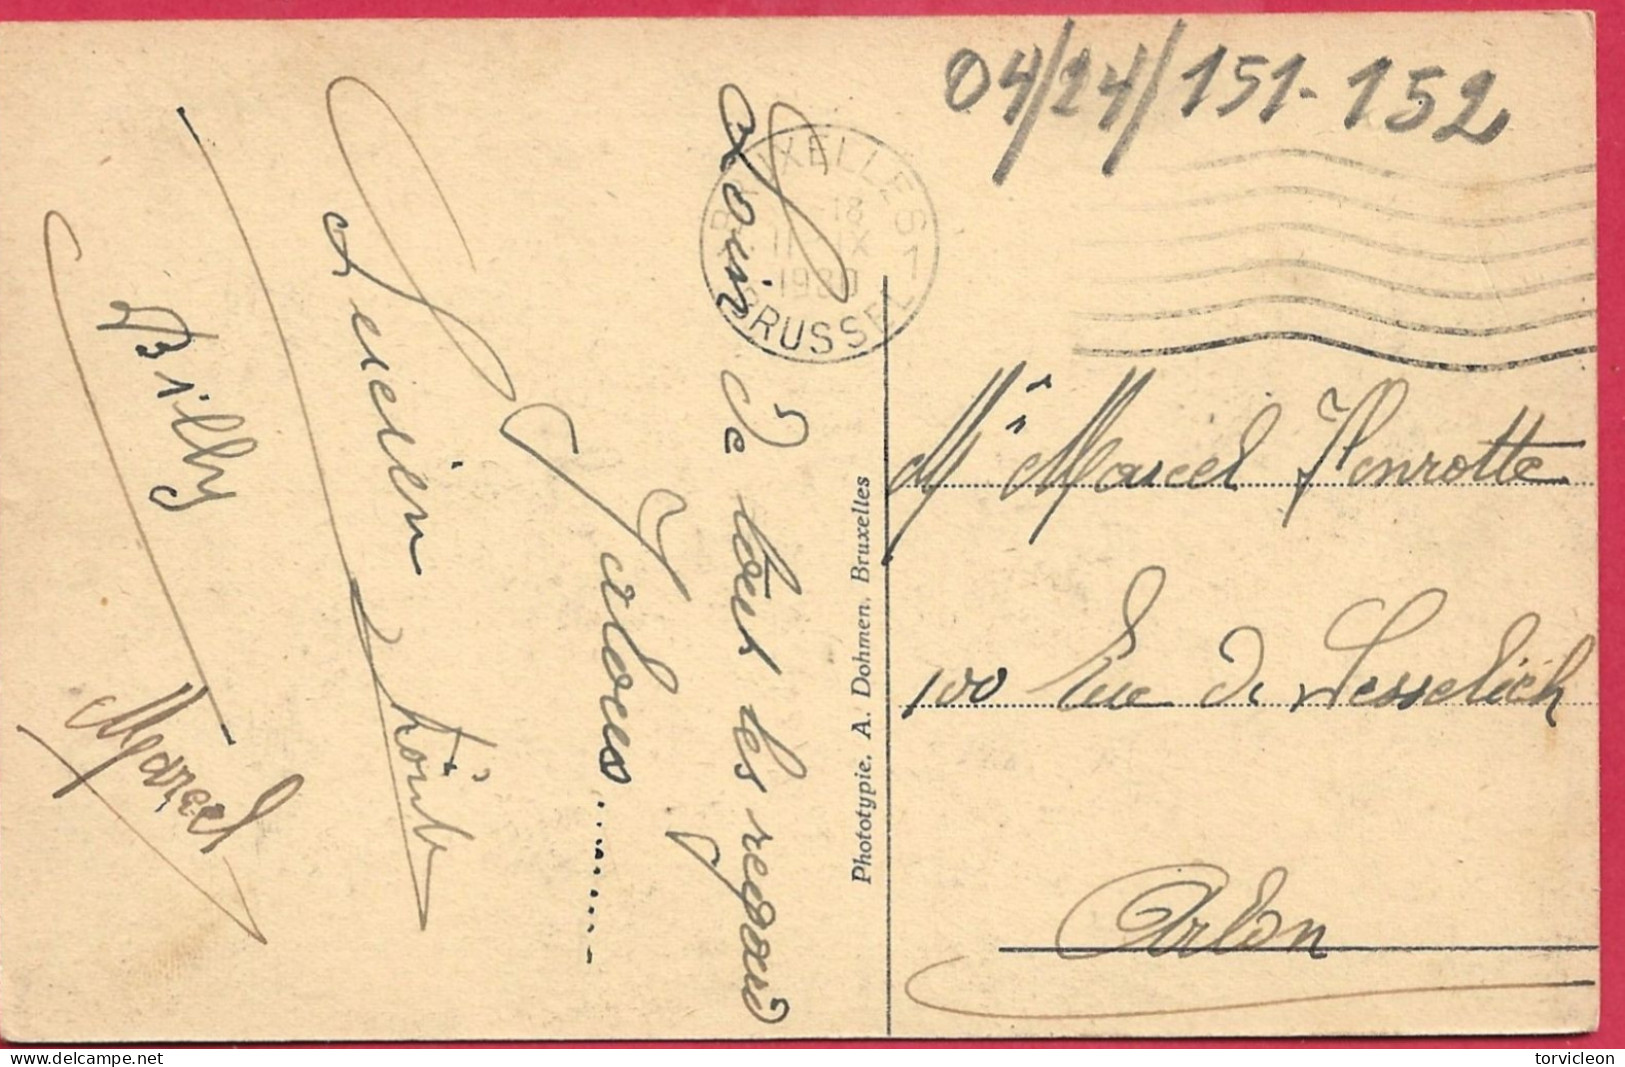 04/24/151-152
BRUXELLES 1
18
11 IX
1930
BRUSSEL
Loin de tout les regard
Jaloux..........
Lucien
Billy
Marcel
Phototypie. A. Dohmen. Bruxelles
Mr Marcel Henrotte
100 Rue de Sesselich
Arlon
delcampe.net
torvicleon